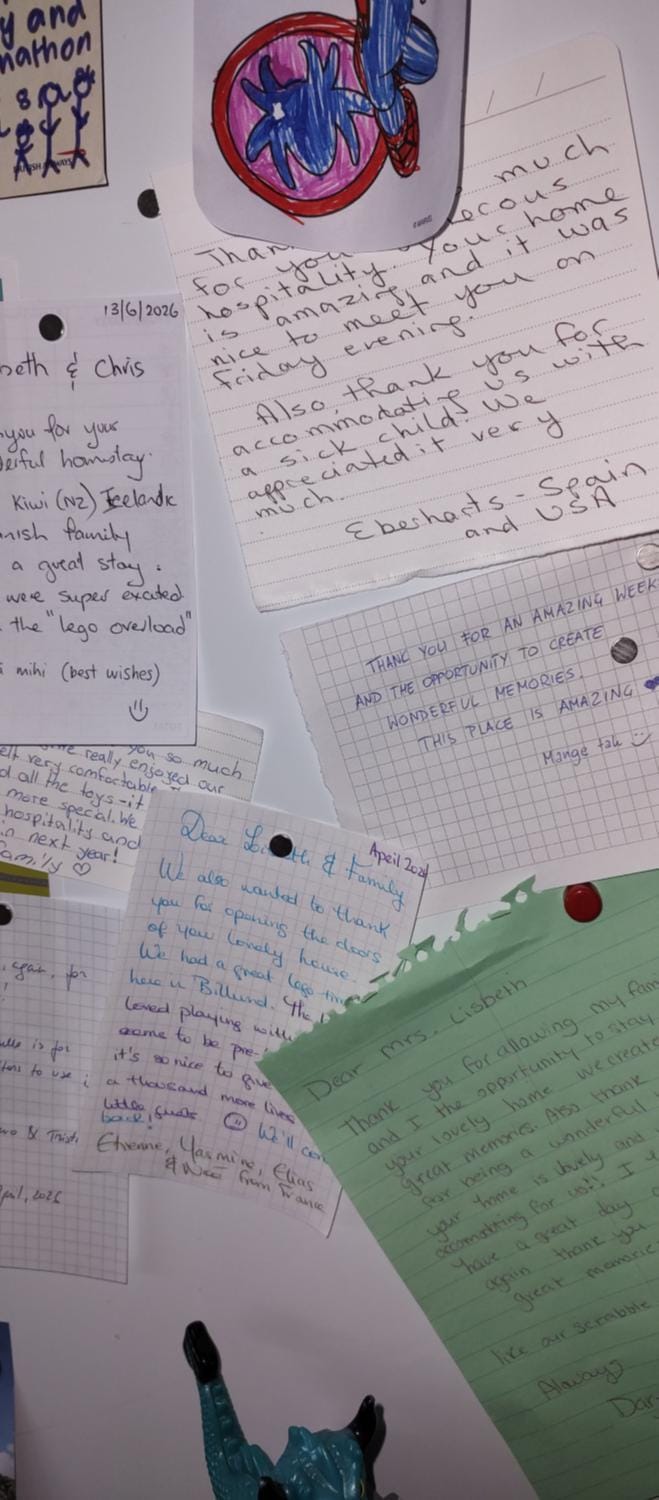 y and
mathon
8
much
for you
hospitality. Your home
is amazing and it was
nice to meet you on
Friday evening.
Also, thank you for
accommodating us with
a sick child. We
appreciated it very
much.
Eberharts - Spain
and USA
13/6/2026
beth & Chris
you for your
erful homstay.
Kiwi (NZ) Icelandic
nish family
a great stay.
were super excited
the "lego overload"
mihi (best wishes)
THANK YOU FOR AN AMAZING WEEK
AND THE OPPORTUNITY TO CREATE
WONDERFUL MEMORIES.
THIS PLACE IS AMAZING
Mange tak
you so much
really enjoyed our
elt very comfortable
d all the toys - it
more special. We
hospitality and
in next year!
family
Dear & Family
April
We also wanted to thank
you for opening the doors
of your lovely house.
We had a great lego
here in Billund. The
loved playing with
came to be pre-
it's so nice to give
a thousand more lives
little
back! We'll
Etienne, Yasmine, Elias
& from France
again, for
is for
to use
April, 2026
Dear Mrs. Lisbeth
Thank you for allowing my fam
and I the opportunity to stay
your lovely home we create
great memories. Also thank
for being a wonderful
your home is lovely and
accomodating for us!! I
have a great day
again thank you
great memorie
like our scrabble
Always
Dar